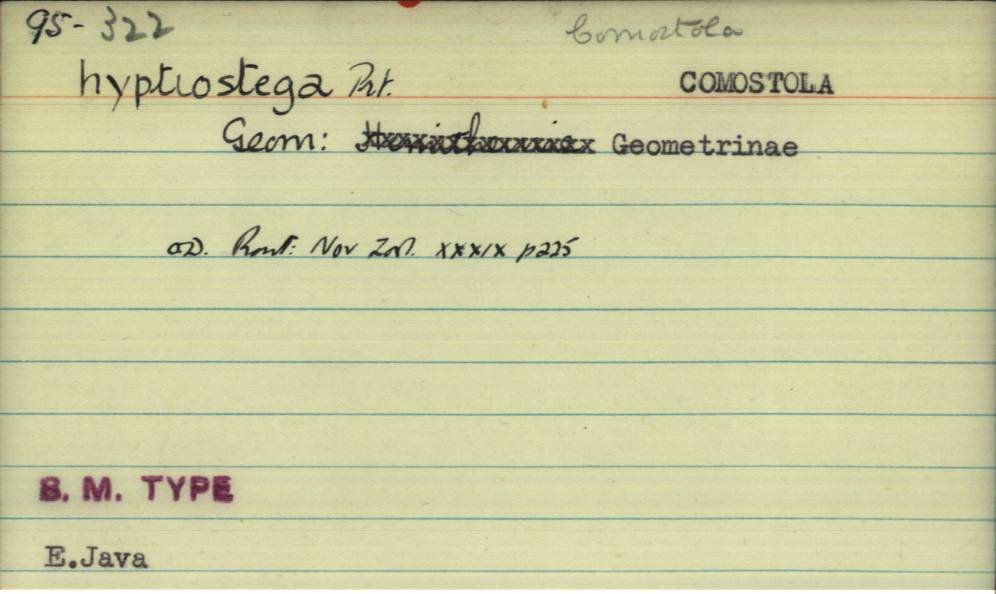 95-322 Comostola
hyptiostega Prt. COMOSTOLA
Geom: Geometrinae
OD. Prout: Nov Zool. xxxix p225
B. M. TYPE
E.Java